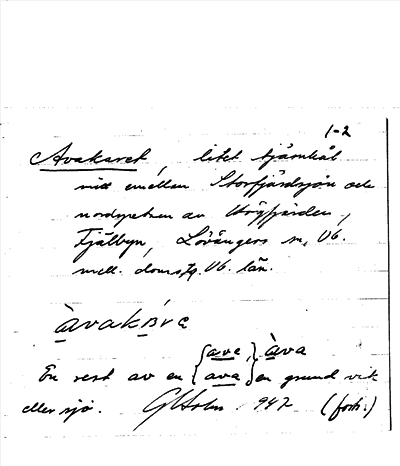 1-2
Avakaret, litet tjärnhål
mitt emellan Storfjärdsjön och
nordspetsen av Högfjärden,
Fjälbyn, Lövångers sn, Vb.
mell. doms., Vb. län.
àvakàrɐ
{ave,} àva
En rest av en {ava} en grund vik
eller sjö. GHolm. 942 (forts.)